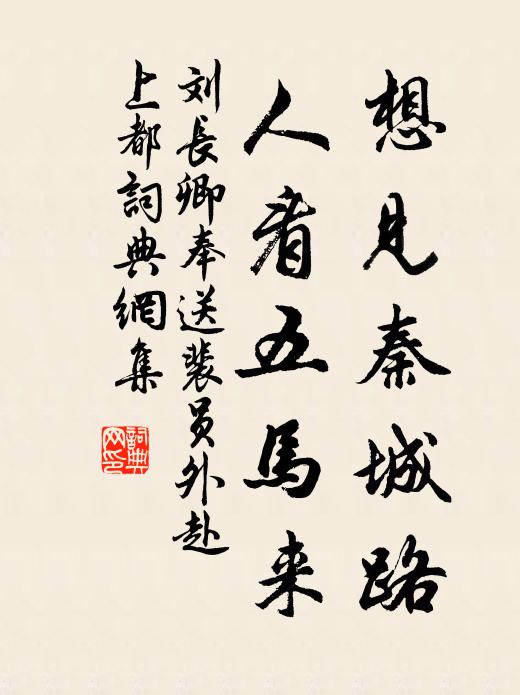 想見秦城路
人看五馬来
刘長卿奉送裴员外赴
上都詞典網集
詞典
网印